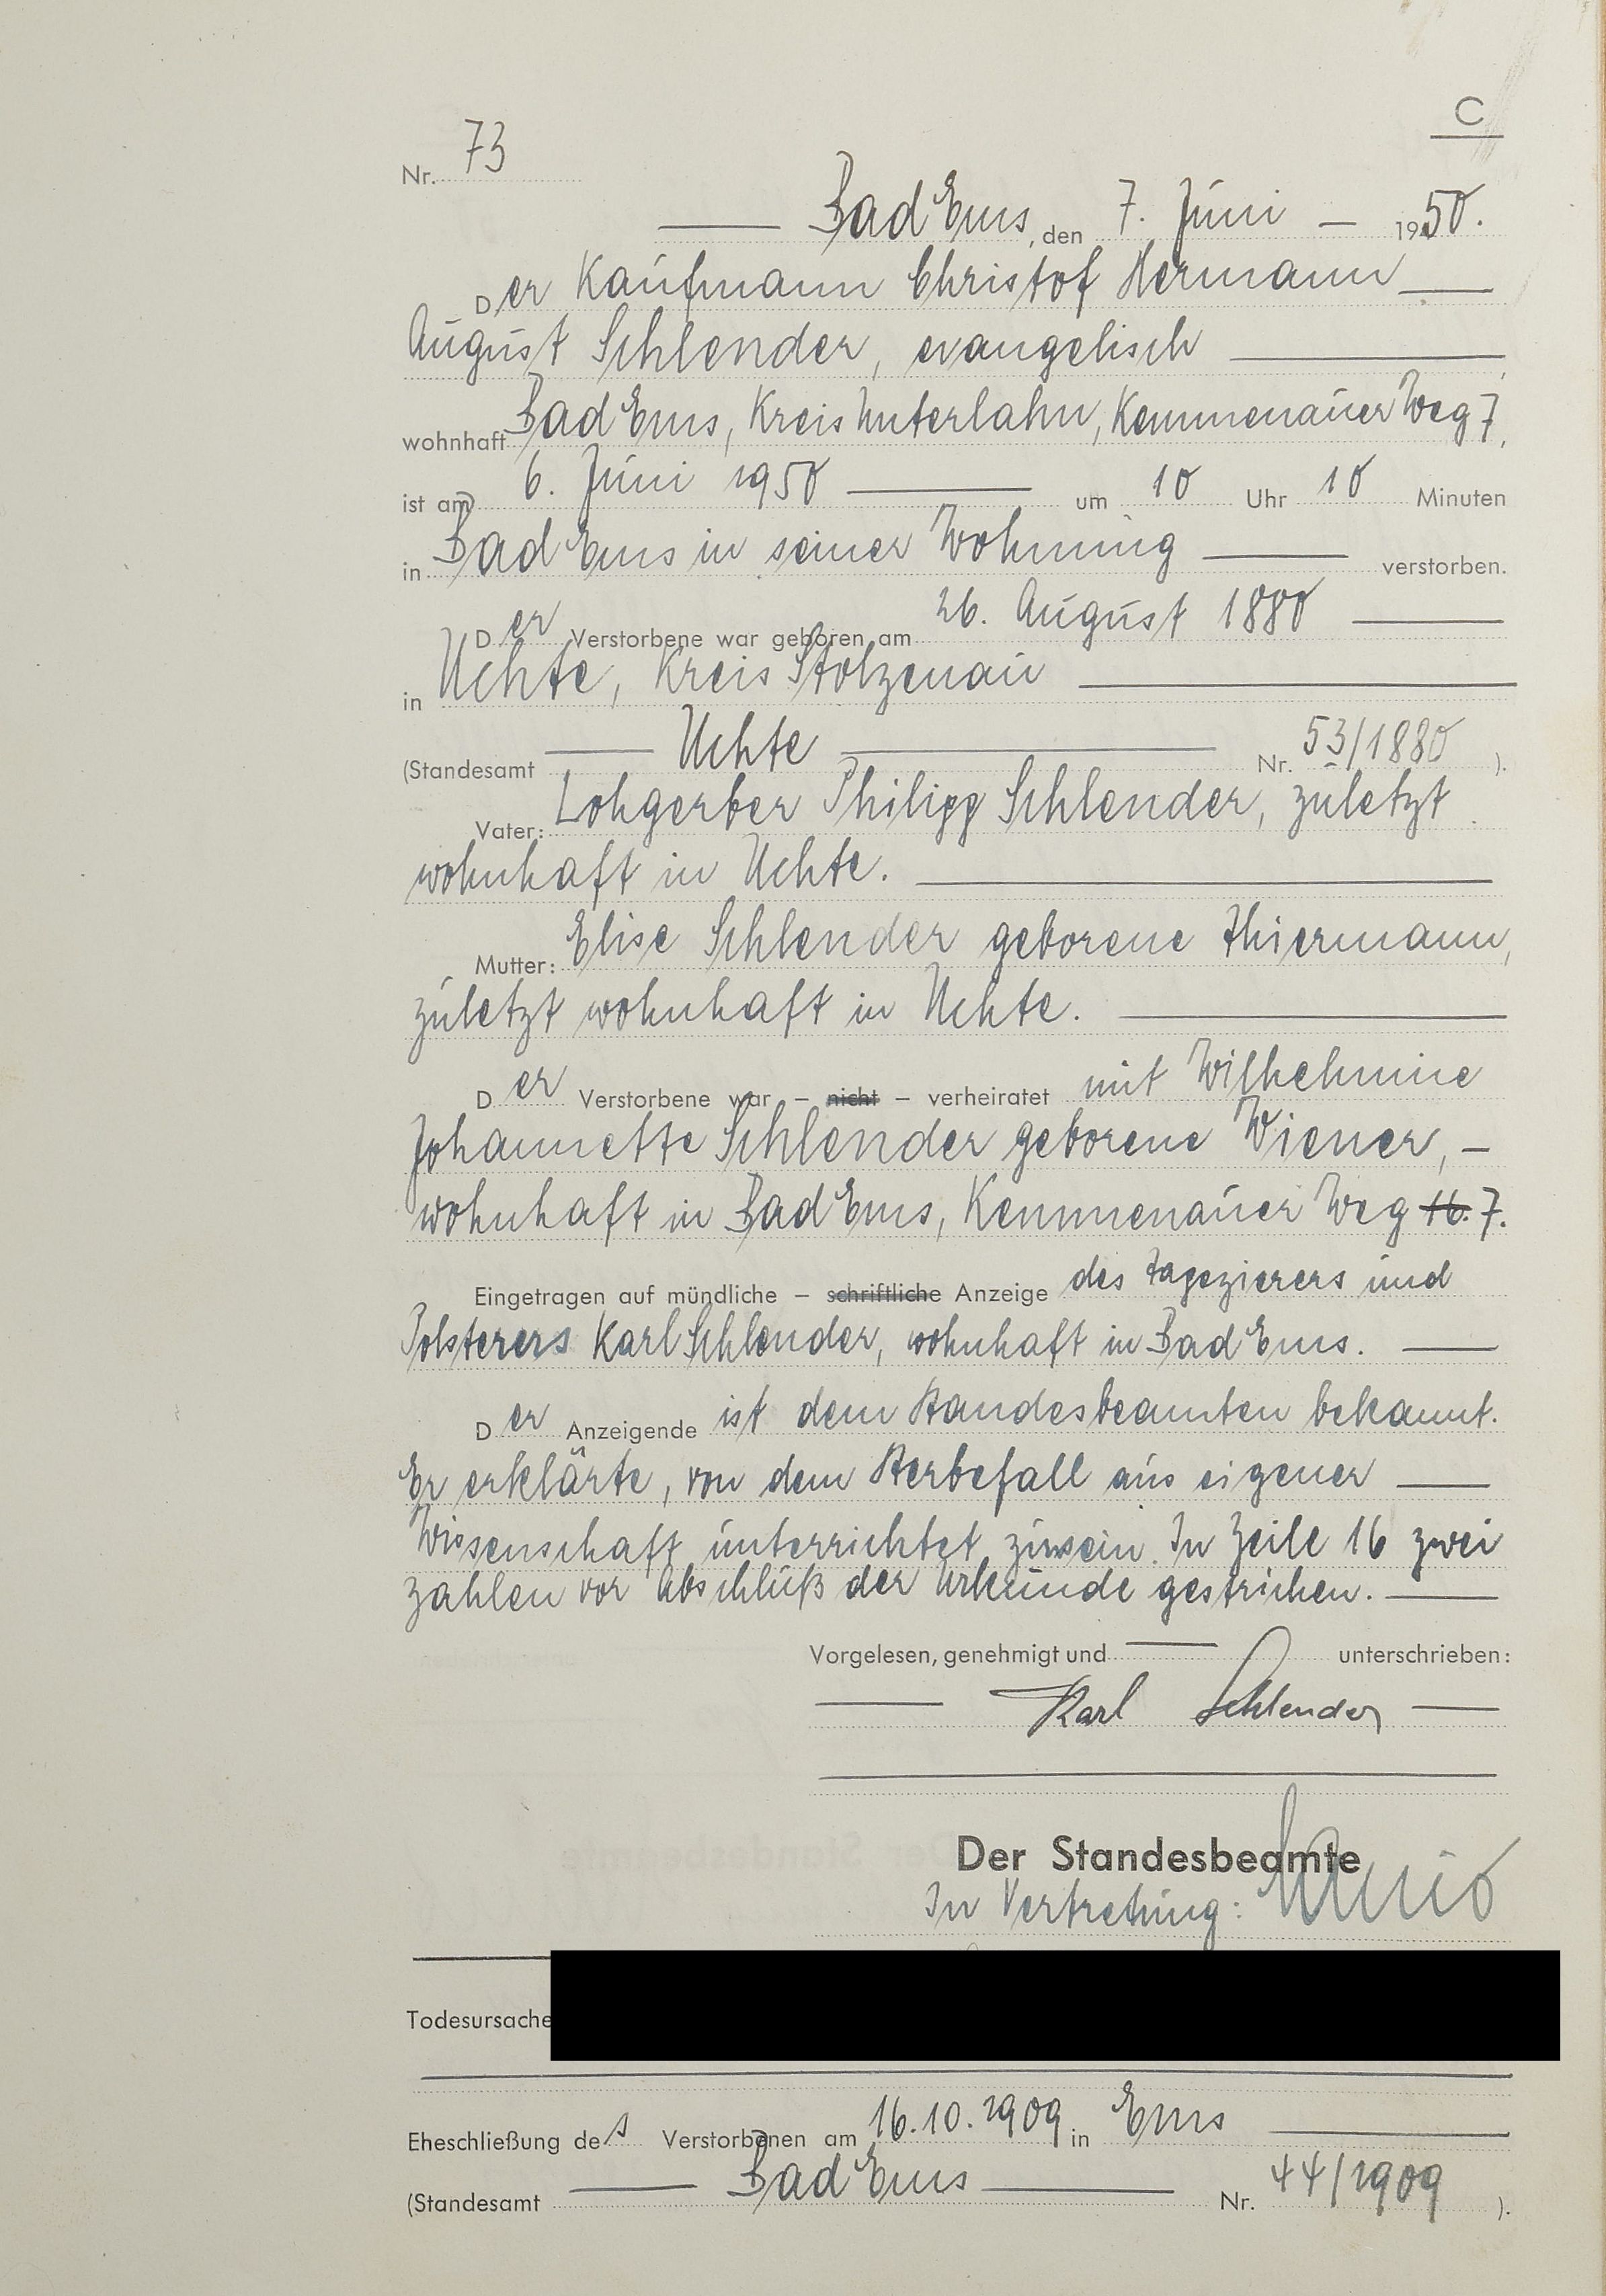 C
Nr. 73
Bad Ems, den 7. Juni 1950.
Der Kaufmann Christof Hermann
August Schlender, evangelisch
wohnhaft Bad Ems, Kreis Unterlahn, Kemmenauer Weg 7,
ist am 6. Juni 1950 um 10 Uhr 10 Minuten
in Bad Ems in seiner Wohnung verstorben.
Der Verstorbene war geboren am 26. August 1880
in Uchte, Kreis Stolzenau
(Standesamt Uchte Nr. 53/1880 ).
Vater: Lohgerber Philipp Schlender, zuletzt
wohnhaft in Uchte.
Mutter: Elise Schlender geborene Thiermann,
zuletzt wohnhaft in Uchte.
Der Verstorbene war – nicht – verheiratet mit Wilhelmine
Johannette Schlender geborene Wiener, –
wohnhaft in Bad Ems, Kemmenauer Weg 16. 7.
Eingetragen auf mündliche – schriftliche Anzeige des Tapezierers und
Polsterers Karl Schlender, wohnhaft in Bad Ems.
Der Anzeigende ist dem Standesbeamten bekannt.
Er erklärte, von dem Sterbefall aus eigener
Wissenschaft unterrichtet zu sein. In Zeile 16 zwei
Zahlen vor Abschluß der Urkunde gestrichen.
Vorgelesen, genehmigt und unterschrieben:
Karl Schlender
Der Standesbeamte
In Vertretung:
Todesursache
Eheschließung des Verstorbenen am 16.10.1909 in Ems
(Standesamt Bad Ems Nr. 44/1909 ).